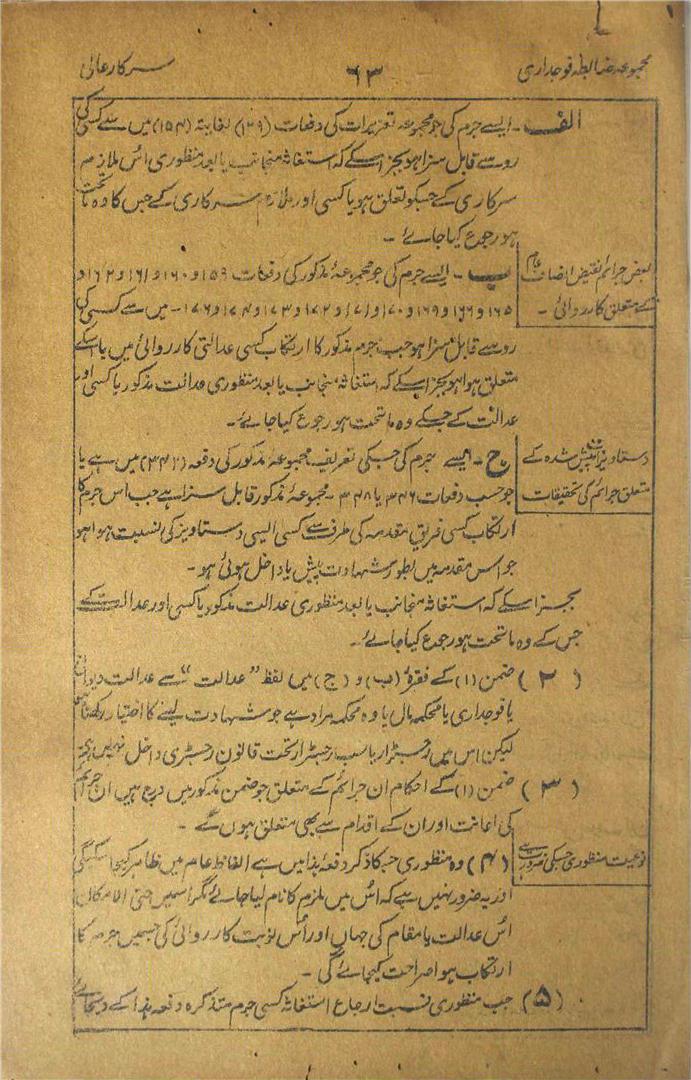 مجموعہ ضابطہ فوجداری
۶۳
سرکار عالی
الف ۔ ایسے جرم کی جو مجموعہ تعزیرات کی دفعات (۱۲۹) لغایتہ (۱۵۴) میں سے کسی کی
رو سے قابل سزا ہو بجز اسکے کہ استغاثہ منجانب یا بعد منظوری اُس ملازم
سرکاری کے جسکو تعلق ہو یا کسی اور ملازم سرکاری کے جس کا وہ ماتحت
ہو رجوع کیا جائے ۔
بعض جرائم نقیض انصاف عام
کے متعلق کارروائی ۔
ب ۔ ایسے جرم کی جو مجموعۂ مذکور کی دفعات ۱۵۹ و ۱۶۰ و ۱۶۱ و ۱۶۲ و
۱۶۵ و ۱۶۶ و ۱۶۹ و ۱۷۰ و ۱۷۱ و ۱۷۲ و ۱۷۳ و ۱۷۴ و ۱۷۶ ۔ میں سے کسی کی
رو سے قابل سزا ہو جب جرم مذکور کا ارتکاب کسی عدالتی کارروائی میں یا اسکے
متعلق ہوا ہو بجز اسکے کہ استغاثہ منجانب یا بعد منظوری عدالت مذکور یا کسی اور
عدالت کے جسکے وہ ماتحت ہو رجوع کیا جائے ۔
دستاویزات پیش شدہ کے
متعلق جرائم کی تحقیقات
ج ۔ ایسے جرم کی جسکی تعریف مجموعۂ مذکور کی دفعہ (۳۴۲) میں ہے یا
جو حسب دفعات ۳۴۶ یا ۳۴۸ ۔ مجموعۂ مذکور قابل سزا ہے جب اس جرم کا
ارتکاب کسی فریق مقدمہ کی طرف سے کسی ایسی دستاویز کی نسبت ہوا ہو
جو اس مقدمہ میں بطور شہادت پیش یا داخل ہوئی ہو ۔
بجز اسکے کہ استغاثہ منجانب یا بعد منظوری عدالت مذکور یا کسی اور عدالت کے
جس کے وہ ماتحت ہو رجوع کیا جائے ۔
(۲) ضمن (۱) کے فقرۂ (ب) و (ج) میں لفظ “عدالت“ سے عدالت دیوانی
یا فوجداری یا محکمہ مال یا وہ محکمہ مراد ہے جو شہادت لینے کا اختیار رکھتا ہے
لیکن اس میں رجسٹرار یا سب رجسٹرار تحت قانون رجسٹری داخل نہیں ہے
(۳) ضمن (۱) کے احکام ان جرائم کے متعلق جو ضمن مذکور میں درج ہیں ان جرائم
کی اعانت اور ان کے اقدام سے بھی متعلق ہوں گے ۔
نوعیت منظوری جسکی ضرورت ہے
(۴) وہ منظوری جسکا ذکر دفعۂ ہذا میں ہے الفاظ عام میں ظاہر کیجا سکیگی
اور یہ ضرور نہیں ہے کہ اُس میں ملزم کا نام لیا جائے مگر اسمیں حتی الامکان
اُس عدالت یا مقام کی جہاں اور اُس نوبت کارروائی کی جسمیں جرم کا
ارتکاب ہوا صراحت کیجائے گی ۔
(۵) جب منظوری نسبت ارجاع استغاثہ کسی جرم متذکرہ دفعہ ہذا کے دیجائے